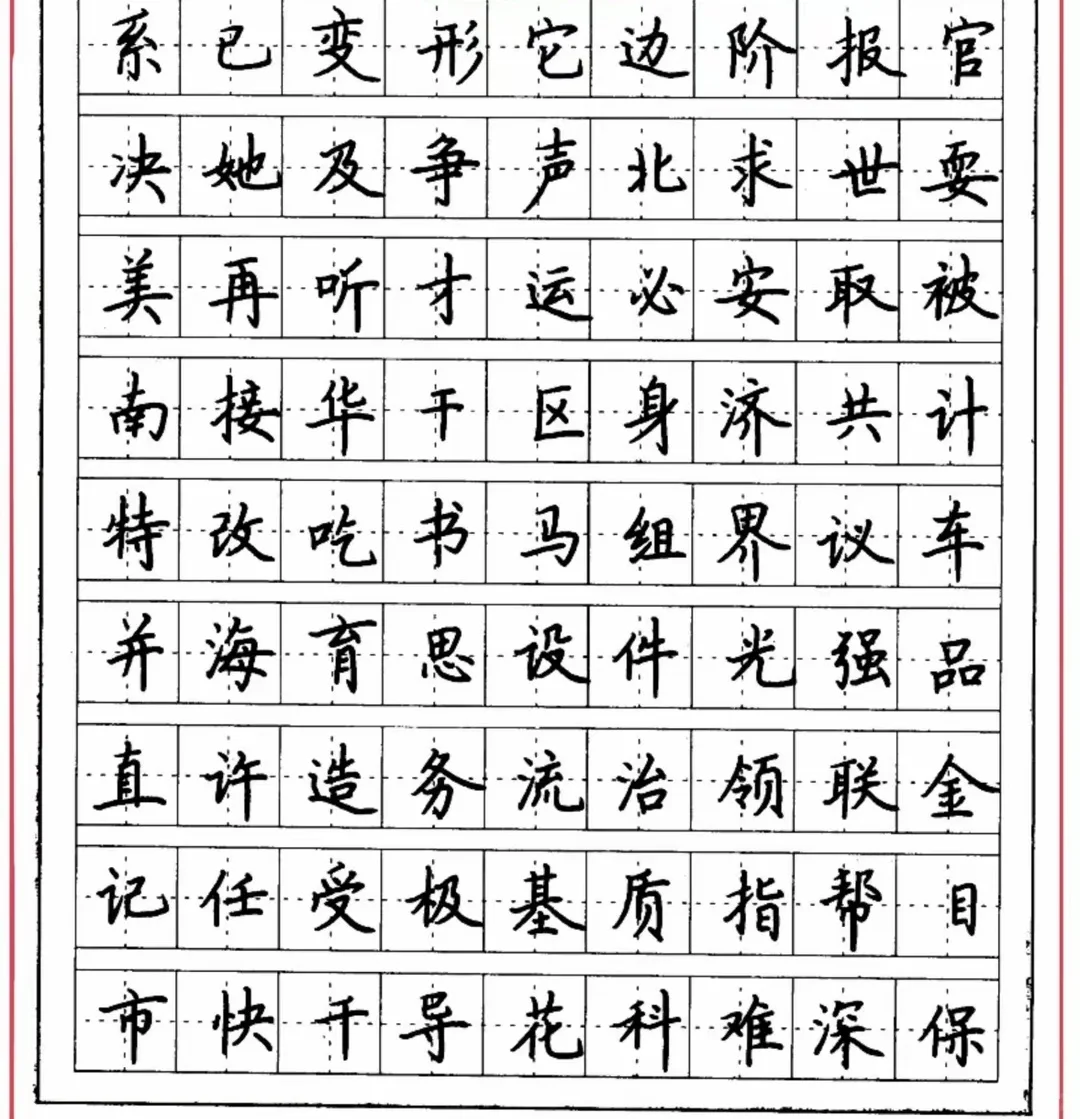 系已变形它边阶报官
决她及争声北求世耍
美再听才运必安取被
南接华干区身济共计
特改吃书马组界议车
并海育思设件光强品
直许造务流治领联金
记任受极基质指帮目
市快千导花科难深保